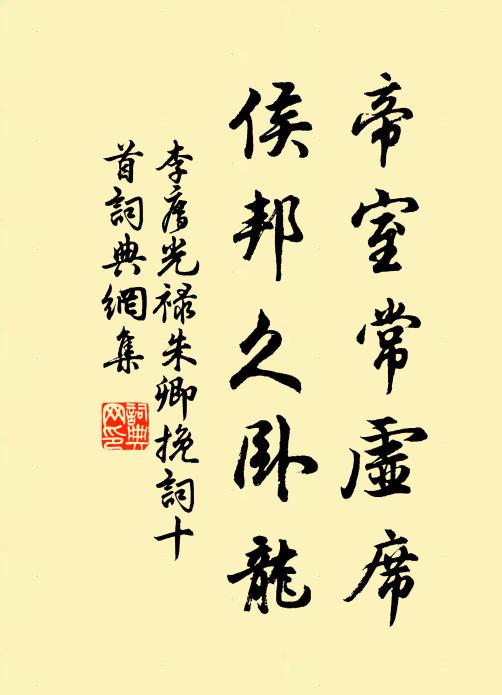 帝室常虛席
侯邦久卧龍
李廌光祿朱卿挽詞十
首詞典網集
詞典
网印